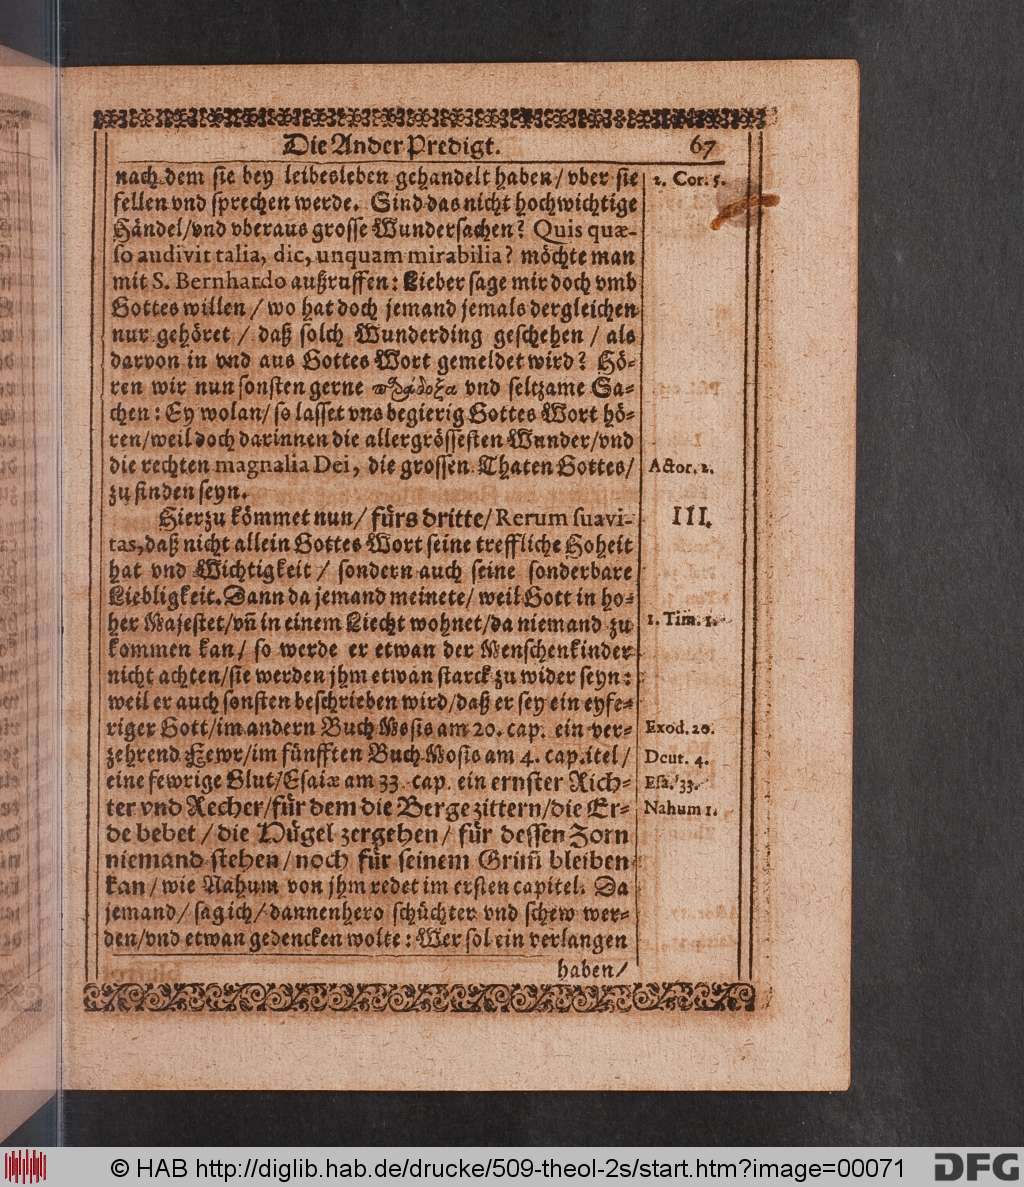 Die Ander Predigt. 67
nach dem sie bey leibesleben gehandelt haben/ vber sie
2. Cor. 5.
fellen vnd sprechen werde. Sind das nicht hochwichtige
Händel/vnd vberaus grosse Wundersachen? Quis quæ-
so audivit talia, dic, unquam mirabilia? möchte man
mit S. Bernhardo außruffen: Lieber sage mir doch vmb
Gottes willen / wo hat doch jemand jemals dergleichen
nur gehöret / daß solch Wunderding geschehen / als
darvon in vnd aus Gottes Wort gemeldet wird? Hö-
ren wir nun sonsten gerne παράδοξα vnd seltzame Sa-
chen: Ey wolan/ so lasset vns begierig Gottes Wort hö-
ren/weil doch darinnen die allergrössesten Wunder/vnd
die rechten magnalia Dei, die grossen Thaten Gottes/
Actor. 2.
zu finden seyn.
Hierzu kömmet nun/ fürs dritte/ Rerum suavi-
III.
tas, daß nicht allein Gottes Wort seine treffliche Hoheit
hat vnd Wichtigkeit / sondern auch seine sonderbare
Liebligkeit. Dann da jemand meinete/ weil Gott in ho-
her Majestet/vñ in einem Liecht wohnet/da niemand zu
1. Tim. 1.
kommen kan/ so werde er etwan der Menschenkinder
nicht achten/sie werden jhm etwan starck zu wider seyn:
weil er auch sonsten beschrieben wird/daß er sey ein eyfe-
riger Gott/im andern Buch Mosis am 20. cap. ein ver-
Exod. 20.
zehrend Fewr/im fünfften Buch Mosis am 4. capitel /
Deut. 4.
eine fewrige Glut/Esaiæ am 33. cap. ein ernster Rich-
Esa. 33.
ter vnd Recher/für dem die Berge zittern/die Er-
Nahum 1.
de bebet / die Hügel zergehen / für dessen Zorn
niemand stehen / noch für seinem Grim̃ bleiben
kan / wie Nahum von jhm redet im ersten capitel. Da
jemand/ sag ich/ dannenhero schüchter vnd schew wer-
den/vnd etwan gedencken wolte: Wer sol ein verlangen
haben/
© HAB http://diglib.hab.de/drucke/509-theol-2s/start.htm?image=00071
DFG